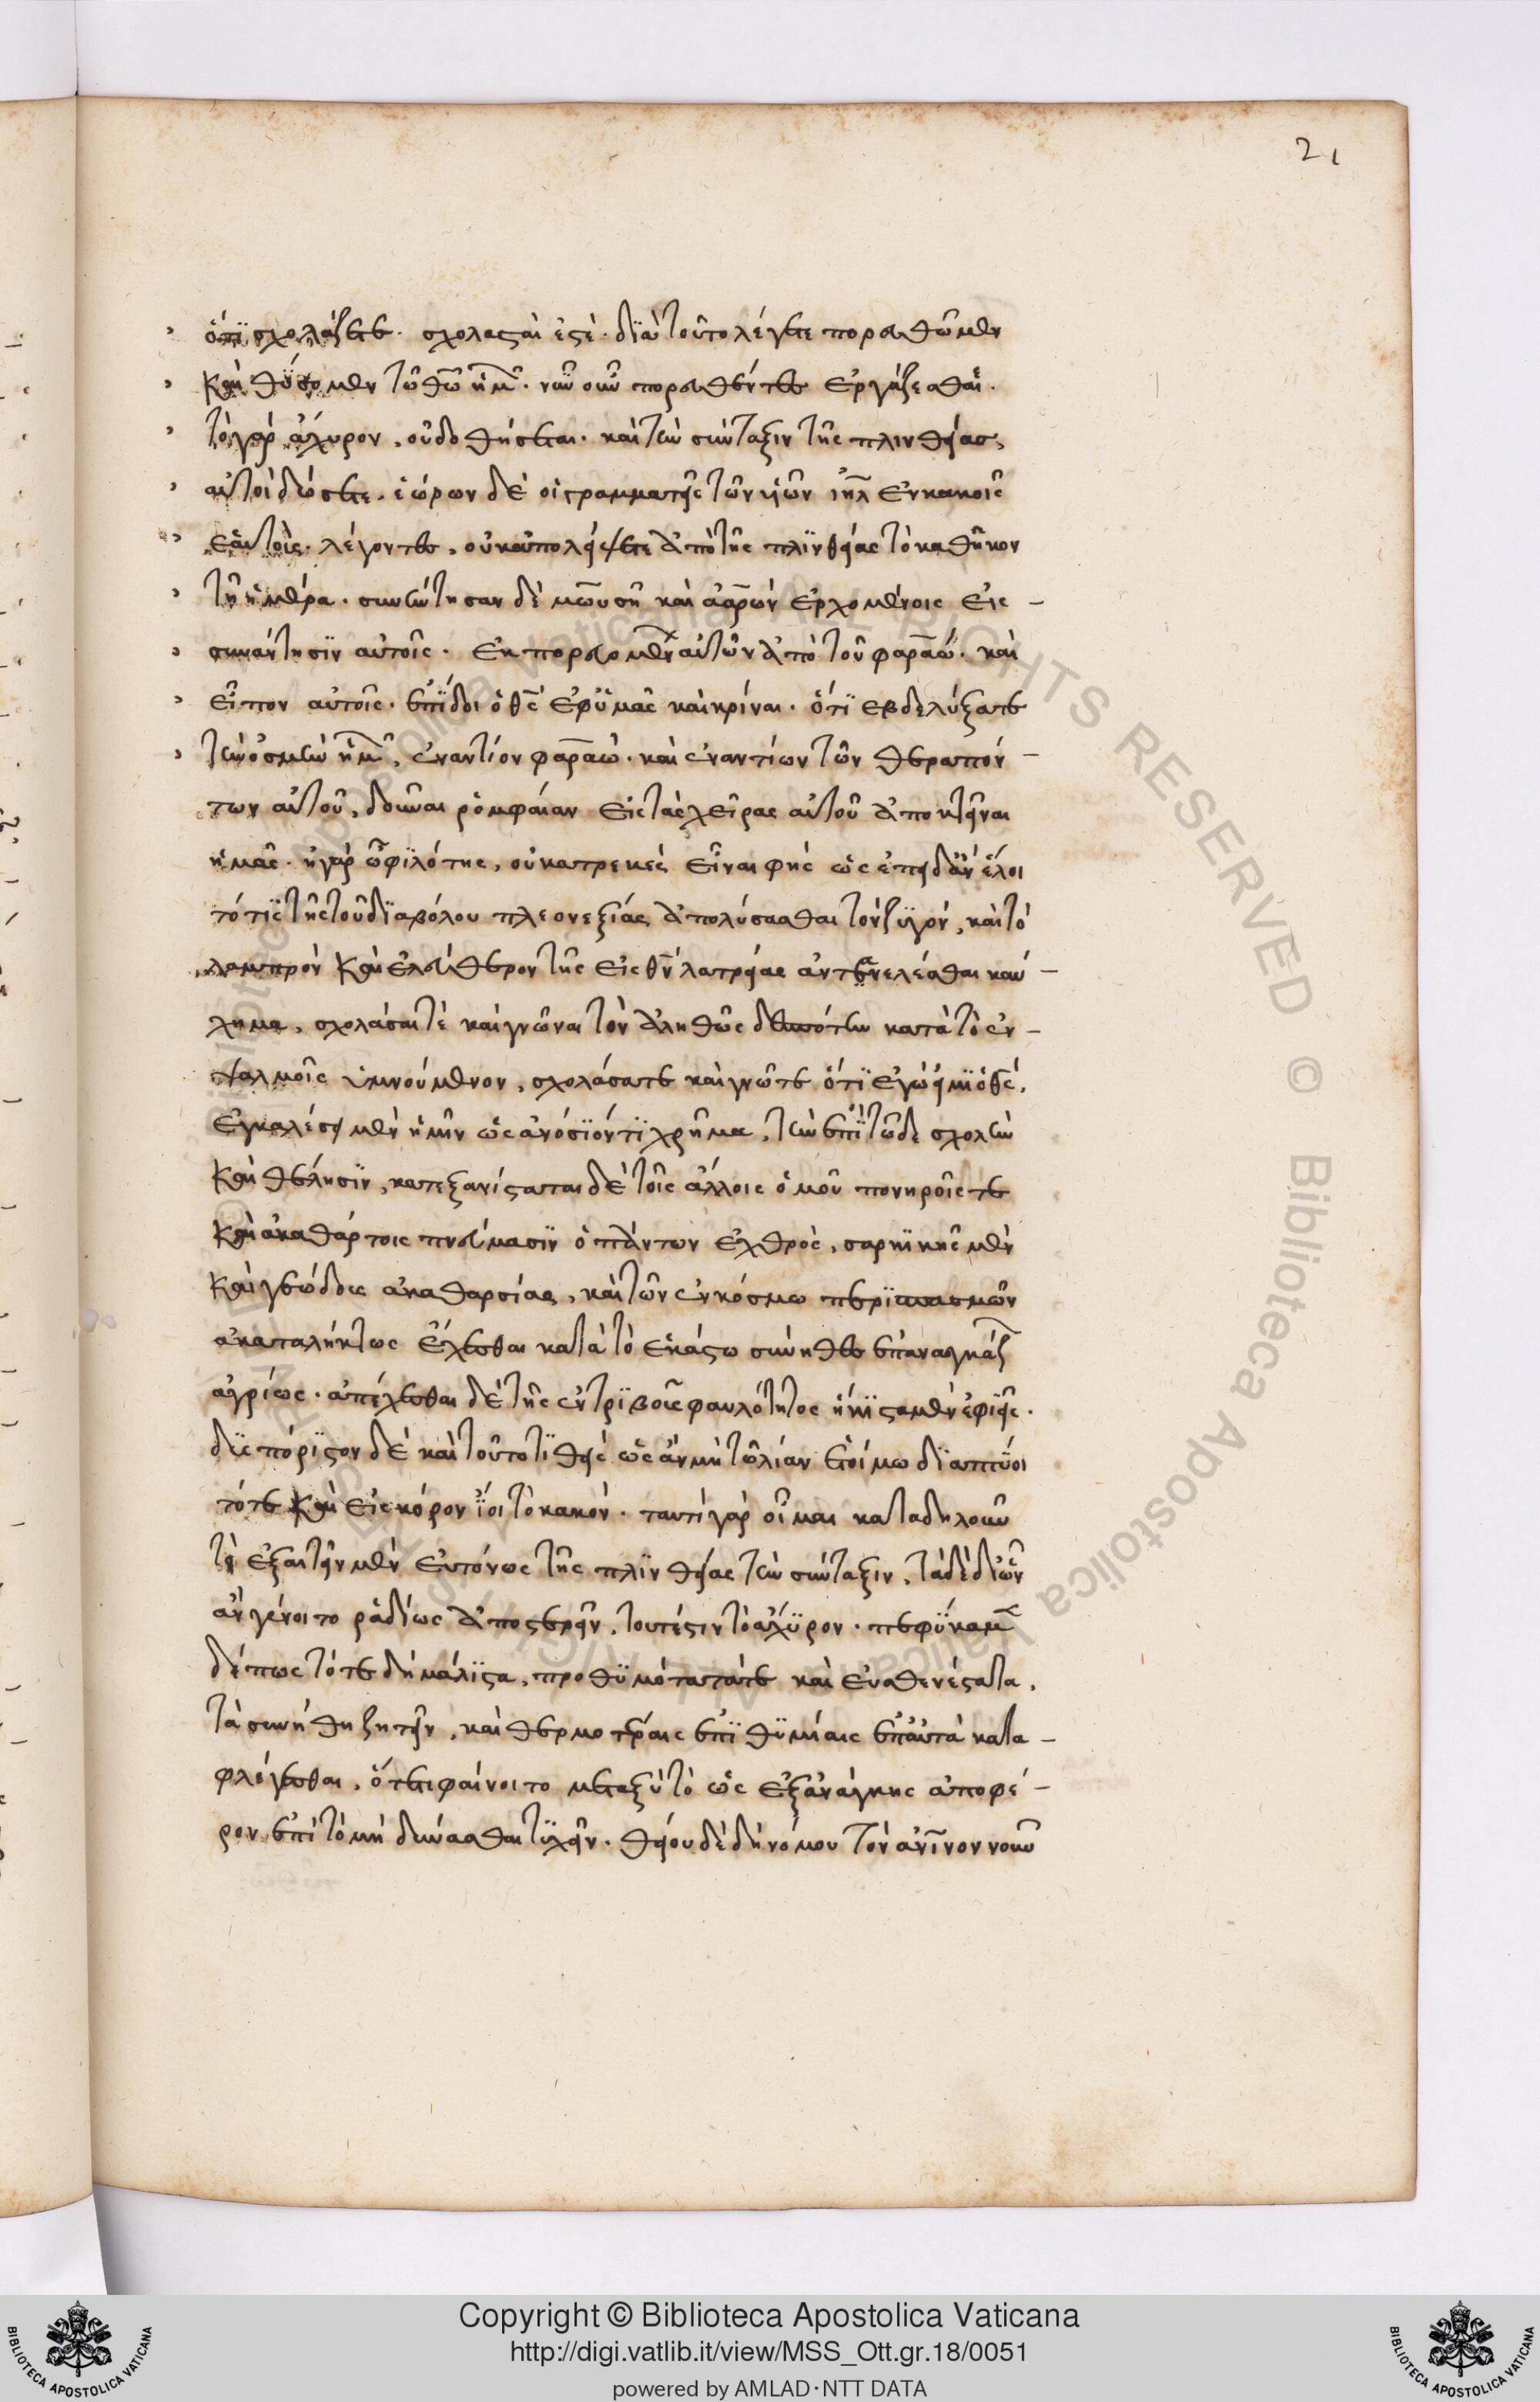 21
ὅτι σχολάζετε. σχολασταί ἐστέ. διὰ τοῦτο λέγετε πορευθῶμεν
καὶ θύσομεν τῶ θῶ ἡμῶν. νῦν οὖν πορευθέντες ἐργάζεσθαι.
τὸ γὰρ ἄχυρον, οὐ δοθήσεται. καὶ τὴν σύνταξιν τῆς πλινθείας,
αὐτοὶ δώσετε. ἑώρων δὲ οἱ γραμματεῖς τῶν υἱῶν ιηλ ἐν κακοῖς
ἑαυτοῖς. λέγοντες, οὐκ ἀπολείψετε ἀπὸ τῆς πλινθείας τὸ καθῆκον
τῆ ἡμέρα. συνήντησαν δὲ μωυσῆ καὶ ἀαρών ἐρχομένοις εἰς –
συνάντησιν αὐτοῖς. ἐκπορευομένων αὐτῶν ἀπὸ τοῦ φαραώ. καὶ
εἶπον αὐτοῖς. ἐπίδοι ὁ θς ἐφ ὑμᾶς καὶ κρίναι. ὅτι ἐβδελύξατε
τὴν ὀσμὴν ἡμῶν, ἐναντίον φαραώ. καὶ ἐναντίων τῶν θεραπόν –
των αὐτοῦ, δοῦναι ρομφαίαν εἰς τὰς χεῖρας αὐτοῦ ἀποκτεῖναι
ἡμᾶς. ἢ γὰρ ὦ φιλότης, οὐκ ἀτρεκὲς εἶναι φὴς ὡς ἐπειδὰν ἕλοι
τό τις τῆς τοῦ διαβόλου πλεονεξίας ἀπολύσασθαι τὸν ζυγόν, καὶ τὸ
λαμπρὸν καὶ ἐλεύθερον τῆς εἰς θν λατρείας ἀντανελέσθαι καύ –
χημα, σχολάσαι τὲ καὶ γνῶναι τὸν ἀληθῶς δεσπότην κατὰ τὸ ἐν –
ψαλμοῖς ὑμνούμενον, σχολάσατε καὶ γνῶτε ὅτι ἐγώ εἰμι ὁ θς.
ἐγκαλέσει μὲν ἡμῖν ὡς ἀνόσιόν τι χρῆμα, τὴν ἐπὶ τῶδε σχολὴν
καὶ θέλησιν, κατεξανίσταται δὲ τοῖς ἄλλοις ὁμοῦ πονηροῖς τε
καὶ ἀκαθάρτοις πνεύμασιν ὁ πάντων ἐχθρὸς, σαρκικῆς μὲν
καὶ γεώδους ἀκαθαρσίας, καὶ τῶν ἐν κόσμω περισπασμῶν
ἀκαταλήκτως ἔχεσθαι κατὰ τὸ ἑκάστω σύνηθες ἐπαναγκάζ
ἀγρίως. ἀπέχεσθαι δὲ τῆς ἐντριβοῦς φαυλότητος ἥκιστα μὲν ἐφιεὶς.
δυσπόριστον δὲ καὶ τοῦτο τιθεὶς ὡς ἂν μὴ τῶ λίαν ἑτοίμω διαπτύοι
τότε καὶ εἰς κόρον ἴοι τὸ κακόν. ταυτὶ γὰρ οἶμαι καταδηλοῦν
τὸ ἐξαιτεῖν μὲν εὐτόνως τῆς πλινθείας τὴν σύνταξιν, τὰ δὲ δι ὧν
ἂν γένοιτο ραδίως ἀποστερεῖν, τουτέστιν τὸ ἄχυρον. πεφύκαμεν
δέ πως τότε δὴ μάλιστα, προθυμότατά τε καὶ εὐσθενέστατα,
τὰ συνήθη ζητεῖν, καὶ θερμοτέραις ἐπιθυμίαις ἐπ αὐτὰ κατα –
φλέγεσθαι, ὅτε τι φαίνοιτο μεταξὺ τὸ ὡς ἐξ ἀνάγκης ἀποφέ –
ρον ἐπὶ τὸ μὴ δύνασθαι τυχεῖν. θείου δὲ δὴ νόμου τὸν ἀνῖνον νοῦν
Copyright © Biblioteca Apostolica Vaticana
http://digi.vatlib.it/view/MSS_Ott.gr.18/0051
powered by AMLAD·NTT DATA